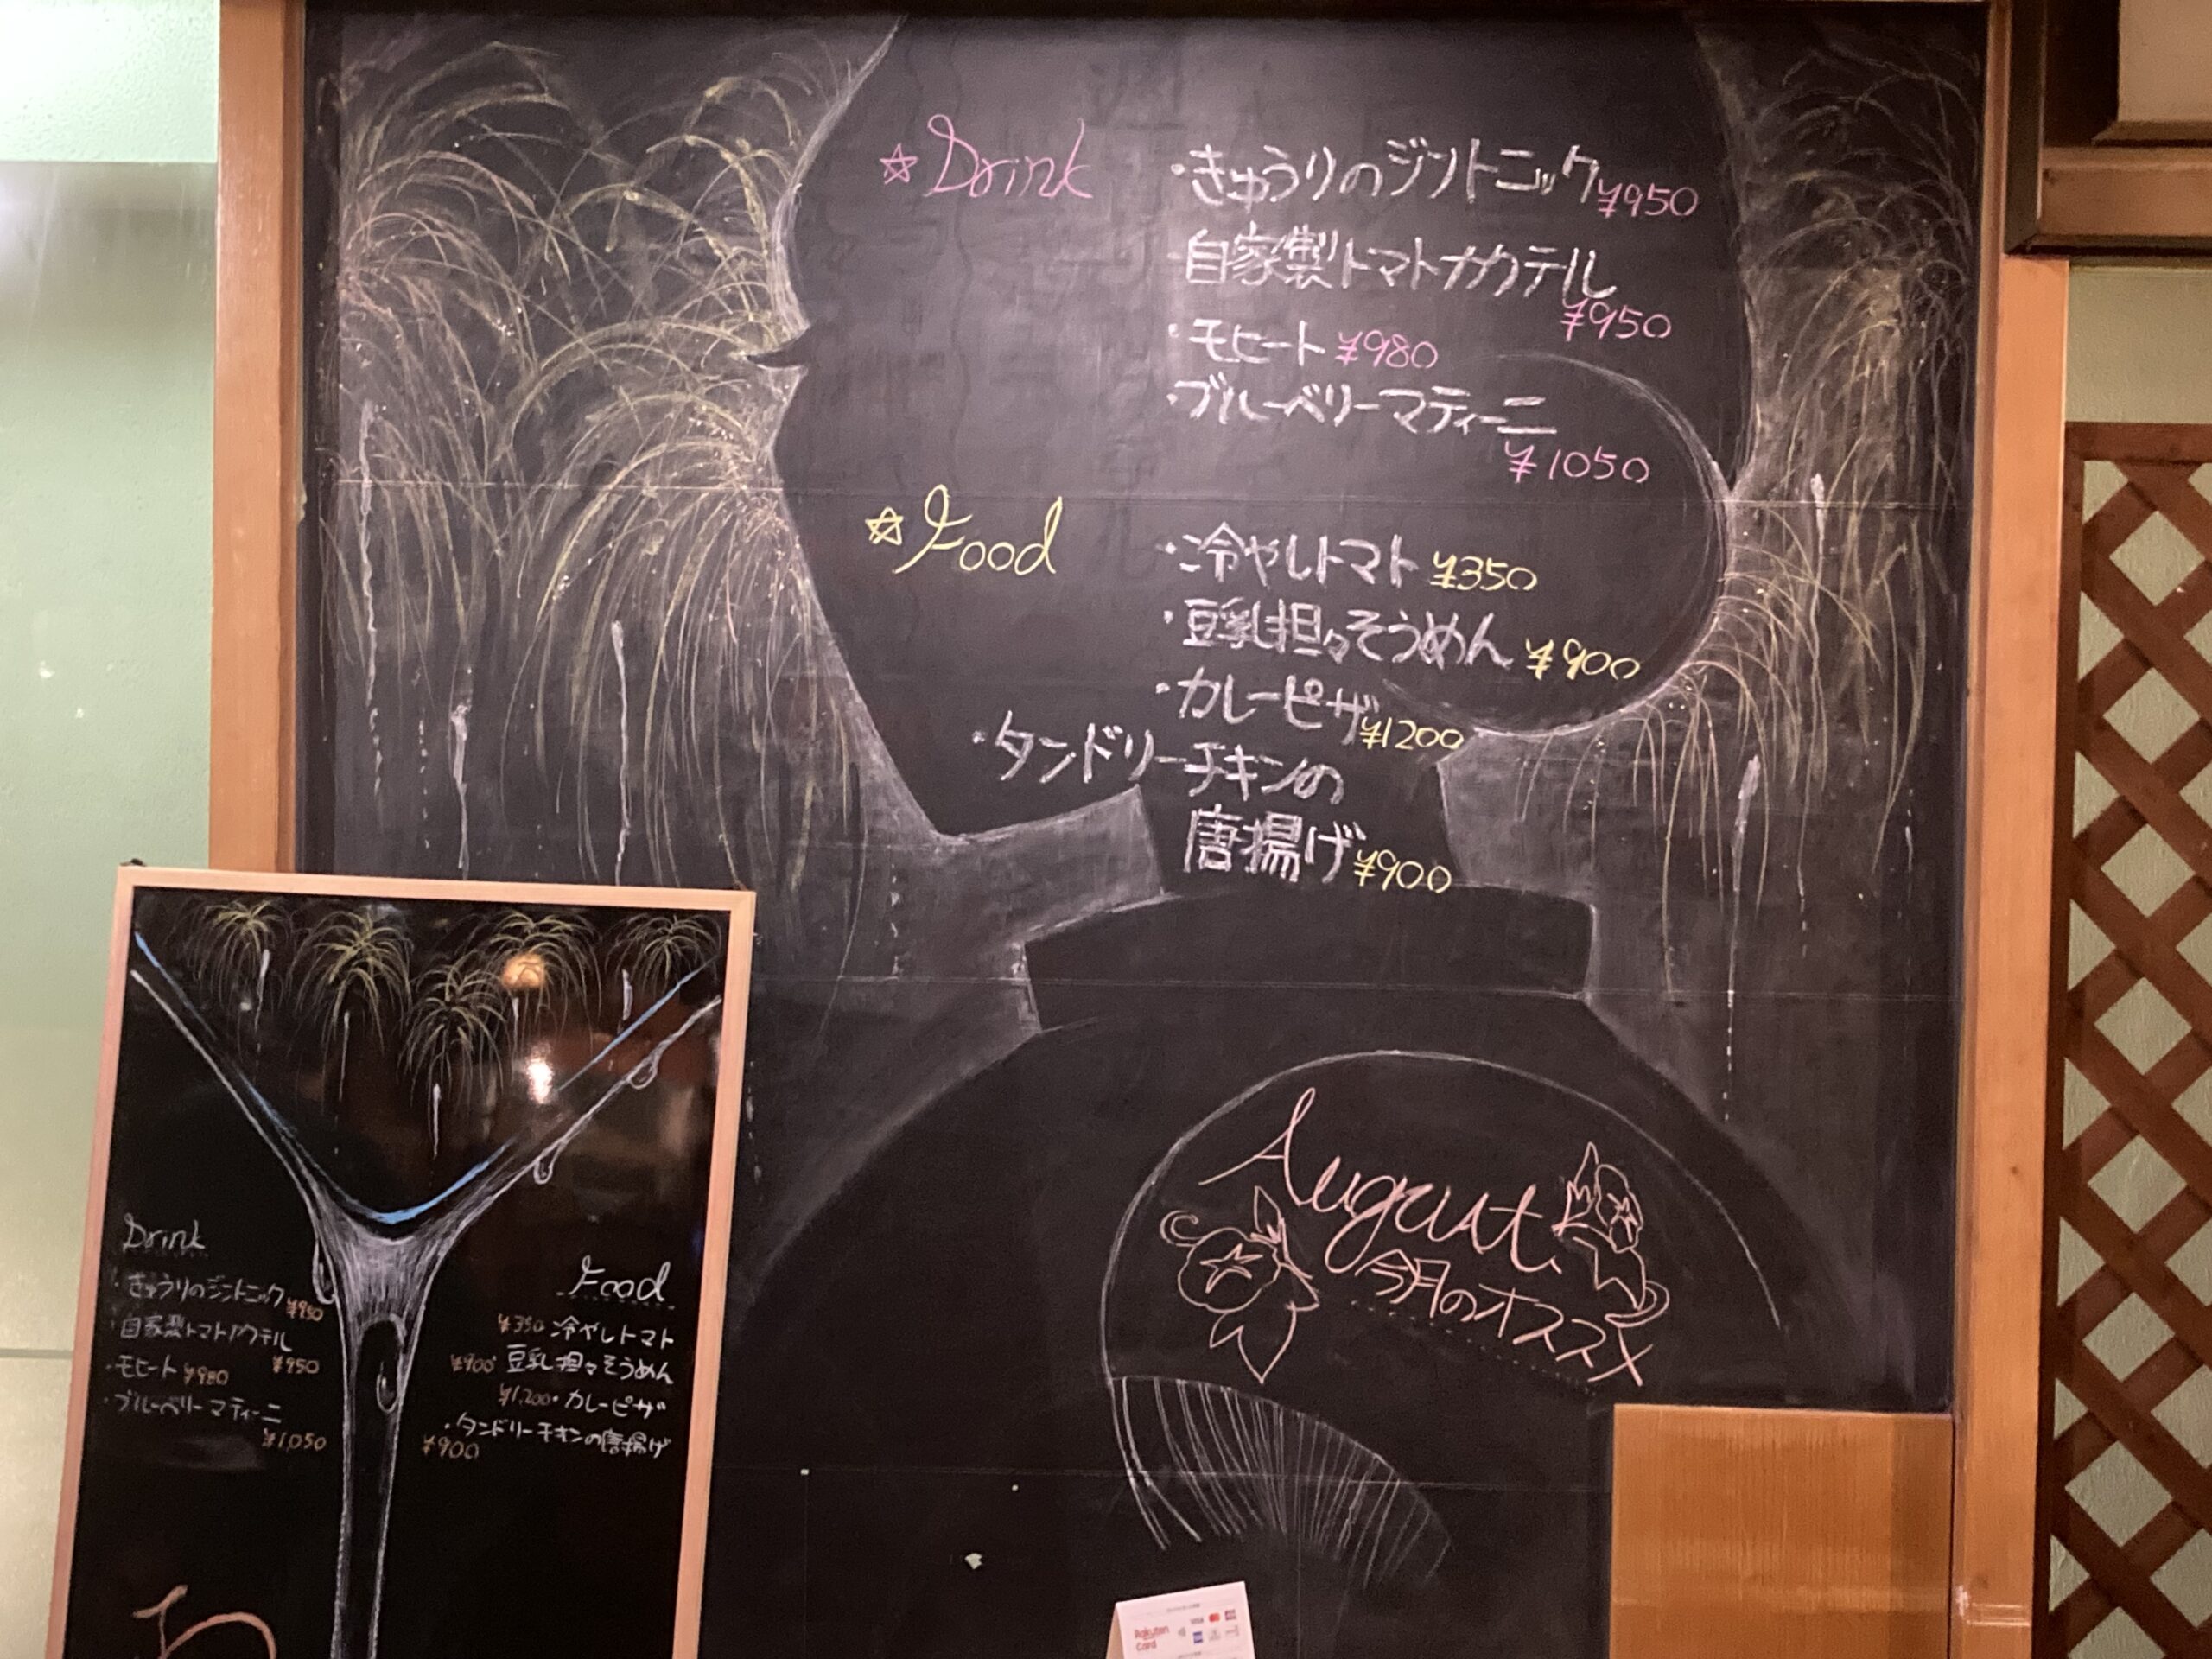 ☆Drink
・きゅうりのジントニック¥950
・自家製トマトカクテル
¥950
・モヒート¥980
・ブルーベリーマティーニ
¥1050
☆Food
・冷やしトマト¥350
・豆乳担々そうめん¥900
・カレーピザ¥1200
・タンドリーチキンの
唐揚げ¥900
August
今月のオススメ
Drink
・きゅうりのジントニック¥950
・自家製トマトカクテル
¥950
・モヒート¥980
・ブルーベリーマティーニ
¥1,050
Food
¥350・冷やしトマト
¥900・豆乳担々そうめん
¥1,200・カレーピザ
・タンドリーチキンの唐揚げ
¥900
Rakuten
Card
VISA